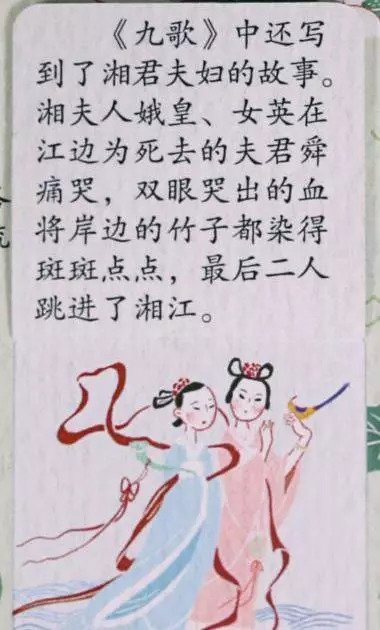 《九歌》中还写
到了湘君夫妇的故事。
湘夫人娥皇、女英在
江边为死去的夫君舜
痛哭，双眼哭出的血
将岸边的竹子都染得
斑斑点点，最后二人
跳进了湘江。